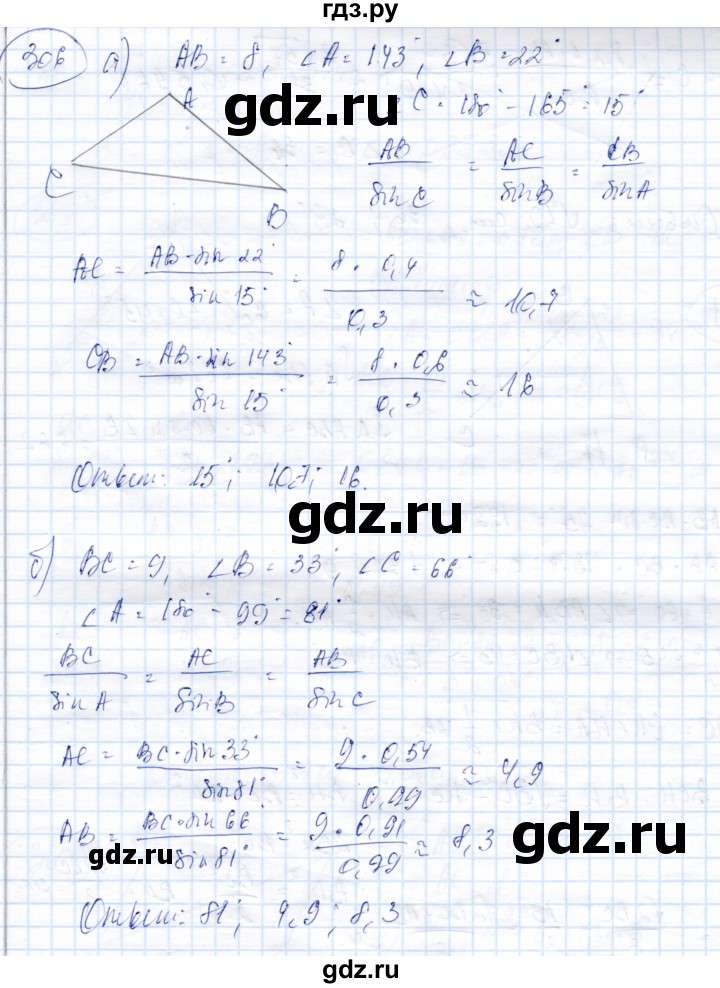 гдз.ру
306 а) AB = 8, ∠A = 143°, ∠B = 22°
∠C = 180° - 165° = 15°
A
C
B
AB/sin C = AC/sin B = CB/sin A
AC = AB·sin 22°/sin 15° = 8 · 0,4/0,3 ≈ 10,7
CB = AB·sin 143°/sin 15° = 8 · 0,6/0,3 ≈ 16
Ответ: 15°; 10,7; 16.
б) BC = 9, ∠B = 33°, ∠C = 66°
∠A = 180° - 99° = 81°
BC/sin A = AC/sin B = AB/sin C
AC = BC·sin 33°/sin 81° = 9 · 0,54/0,99 ≈ 4,9
AB = BC·sin 66°/sin 81° = 9 · 0,91/0,99 ≈ 8,3
Ответ: 81°; 4,9; 8,3
gdz.ru
gdz.ru
gdz.ru
gdz.ru
gdz.ru
gdz.ru